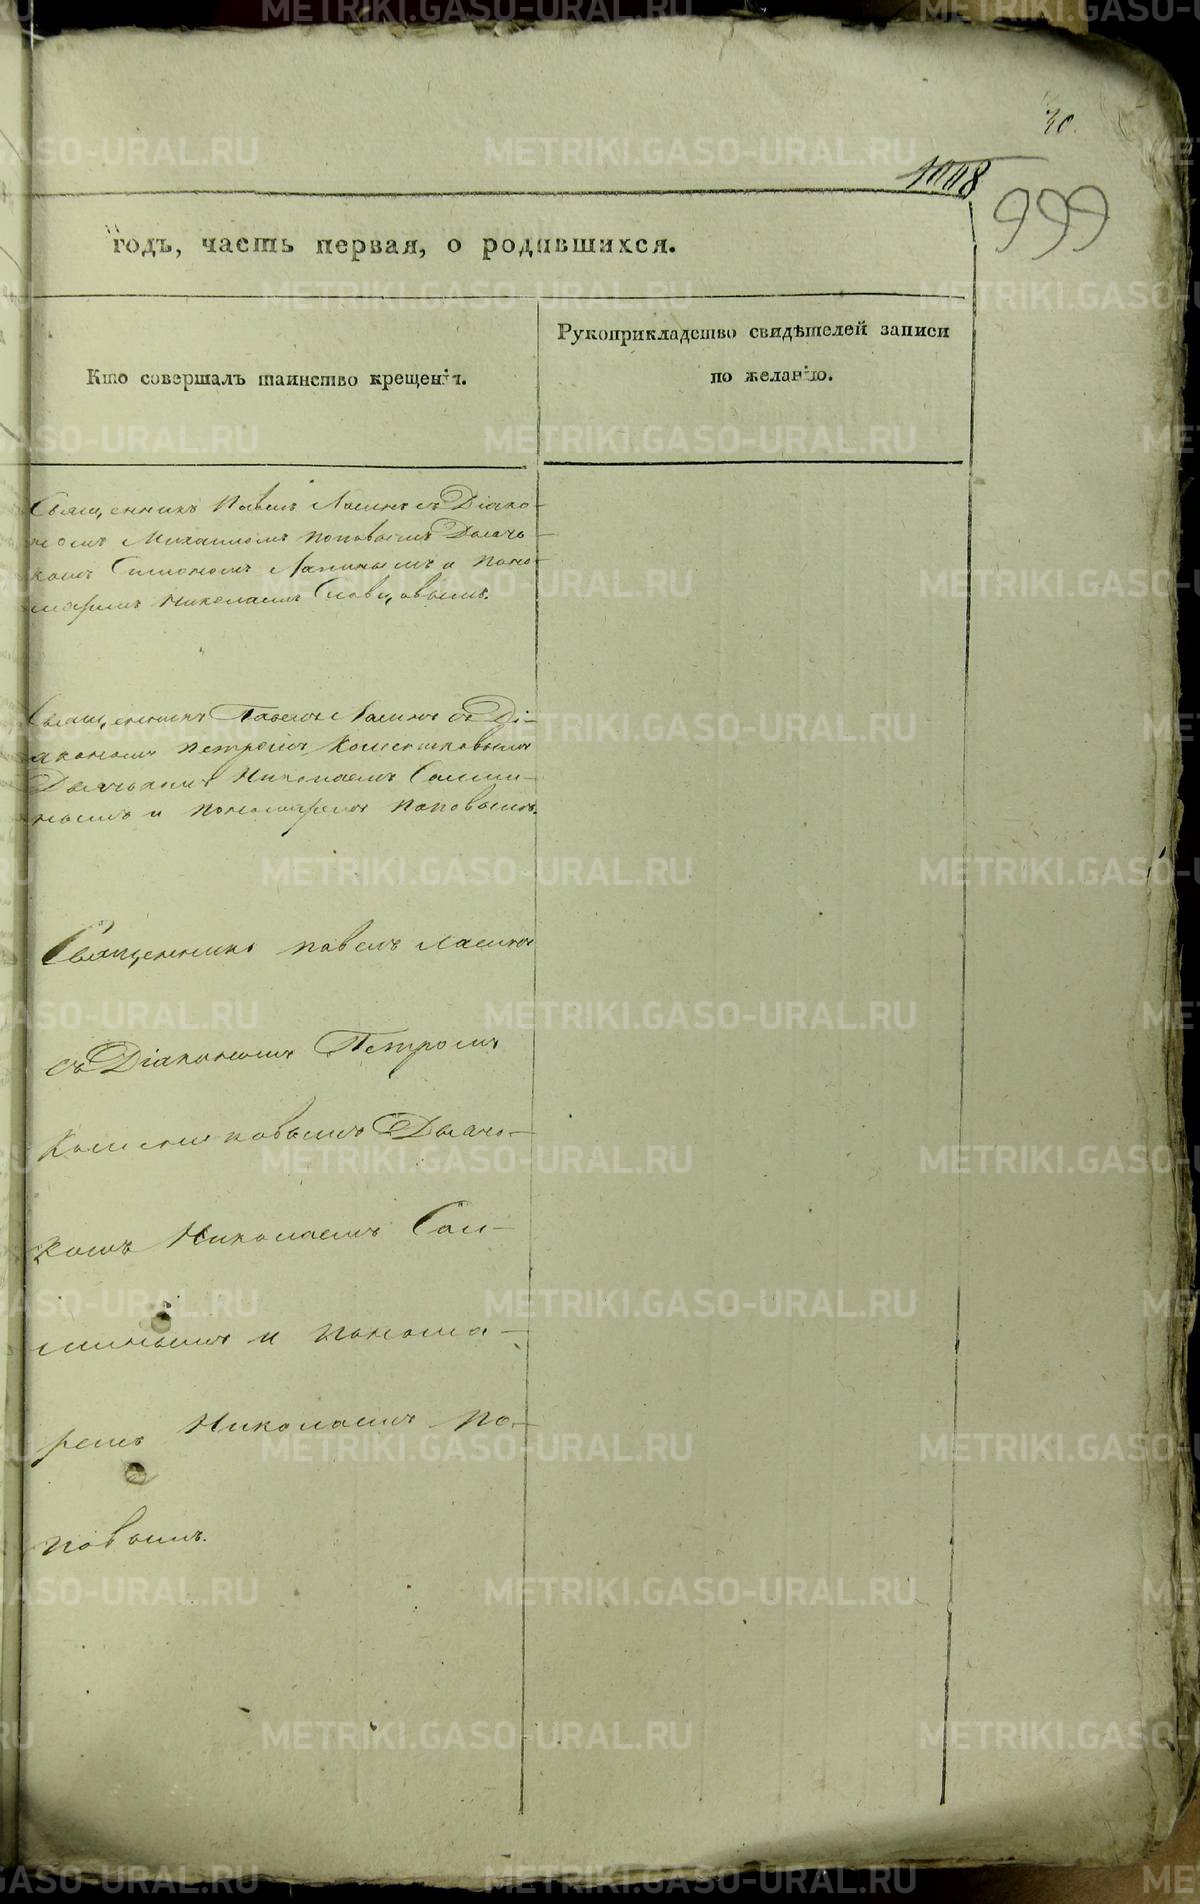 30.
1008
999
годъ, часть первая, о родившихся.
Кто совершалъ таинство крещенія.
Рукоприкладство свидѣтелей записи
по желанію.
Священникъ Павелъ Ласинъ съ Діако-
номъ Михаиломъ Поповымъ Дьячь-
комъ Симономъ Лапинымъ и Поно-
маремъ Николаемъ Словцовымъ.
Священникъ Павелъ Ласинъ съ Ді-
акономъ Петромъ
Дьячькомъ Николаемъ Самми-
нымъ и пономаремъ Поповымъ.
Священникъ Павелъ Ласинъ
съ Діакономъ Петромъ
Дьячь-
комъ Николаемъ Сам-
минымъ и понома-
ремъ Николаемъ По-
повымъ.
METRIKI.GASO-URAL.RU